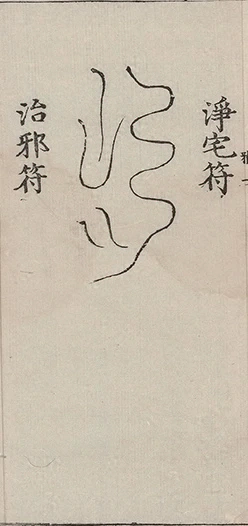 淨宅符
治邪符